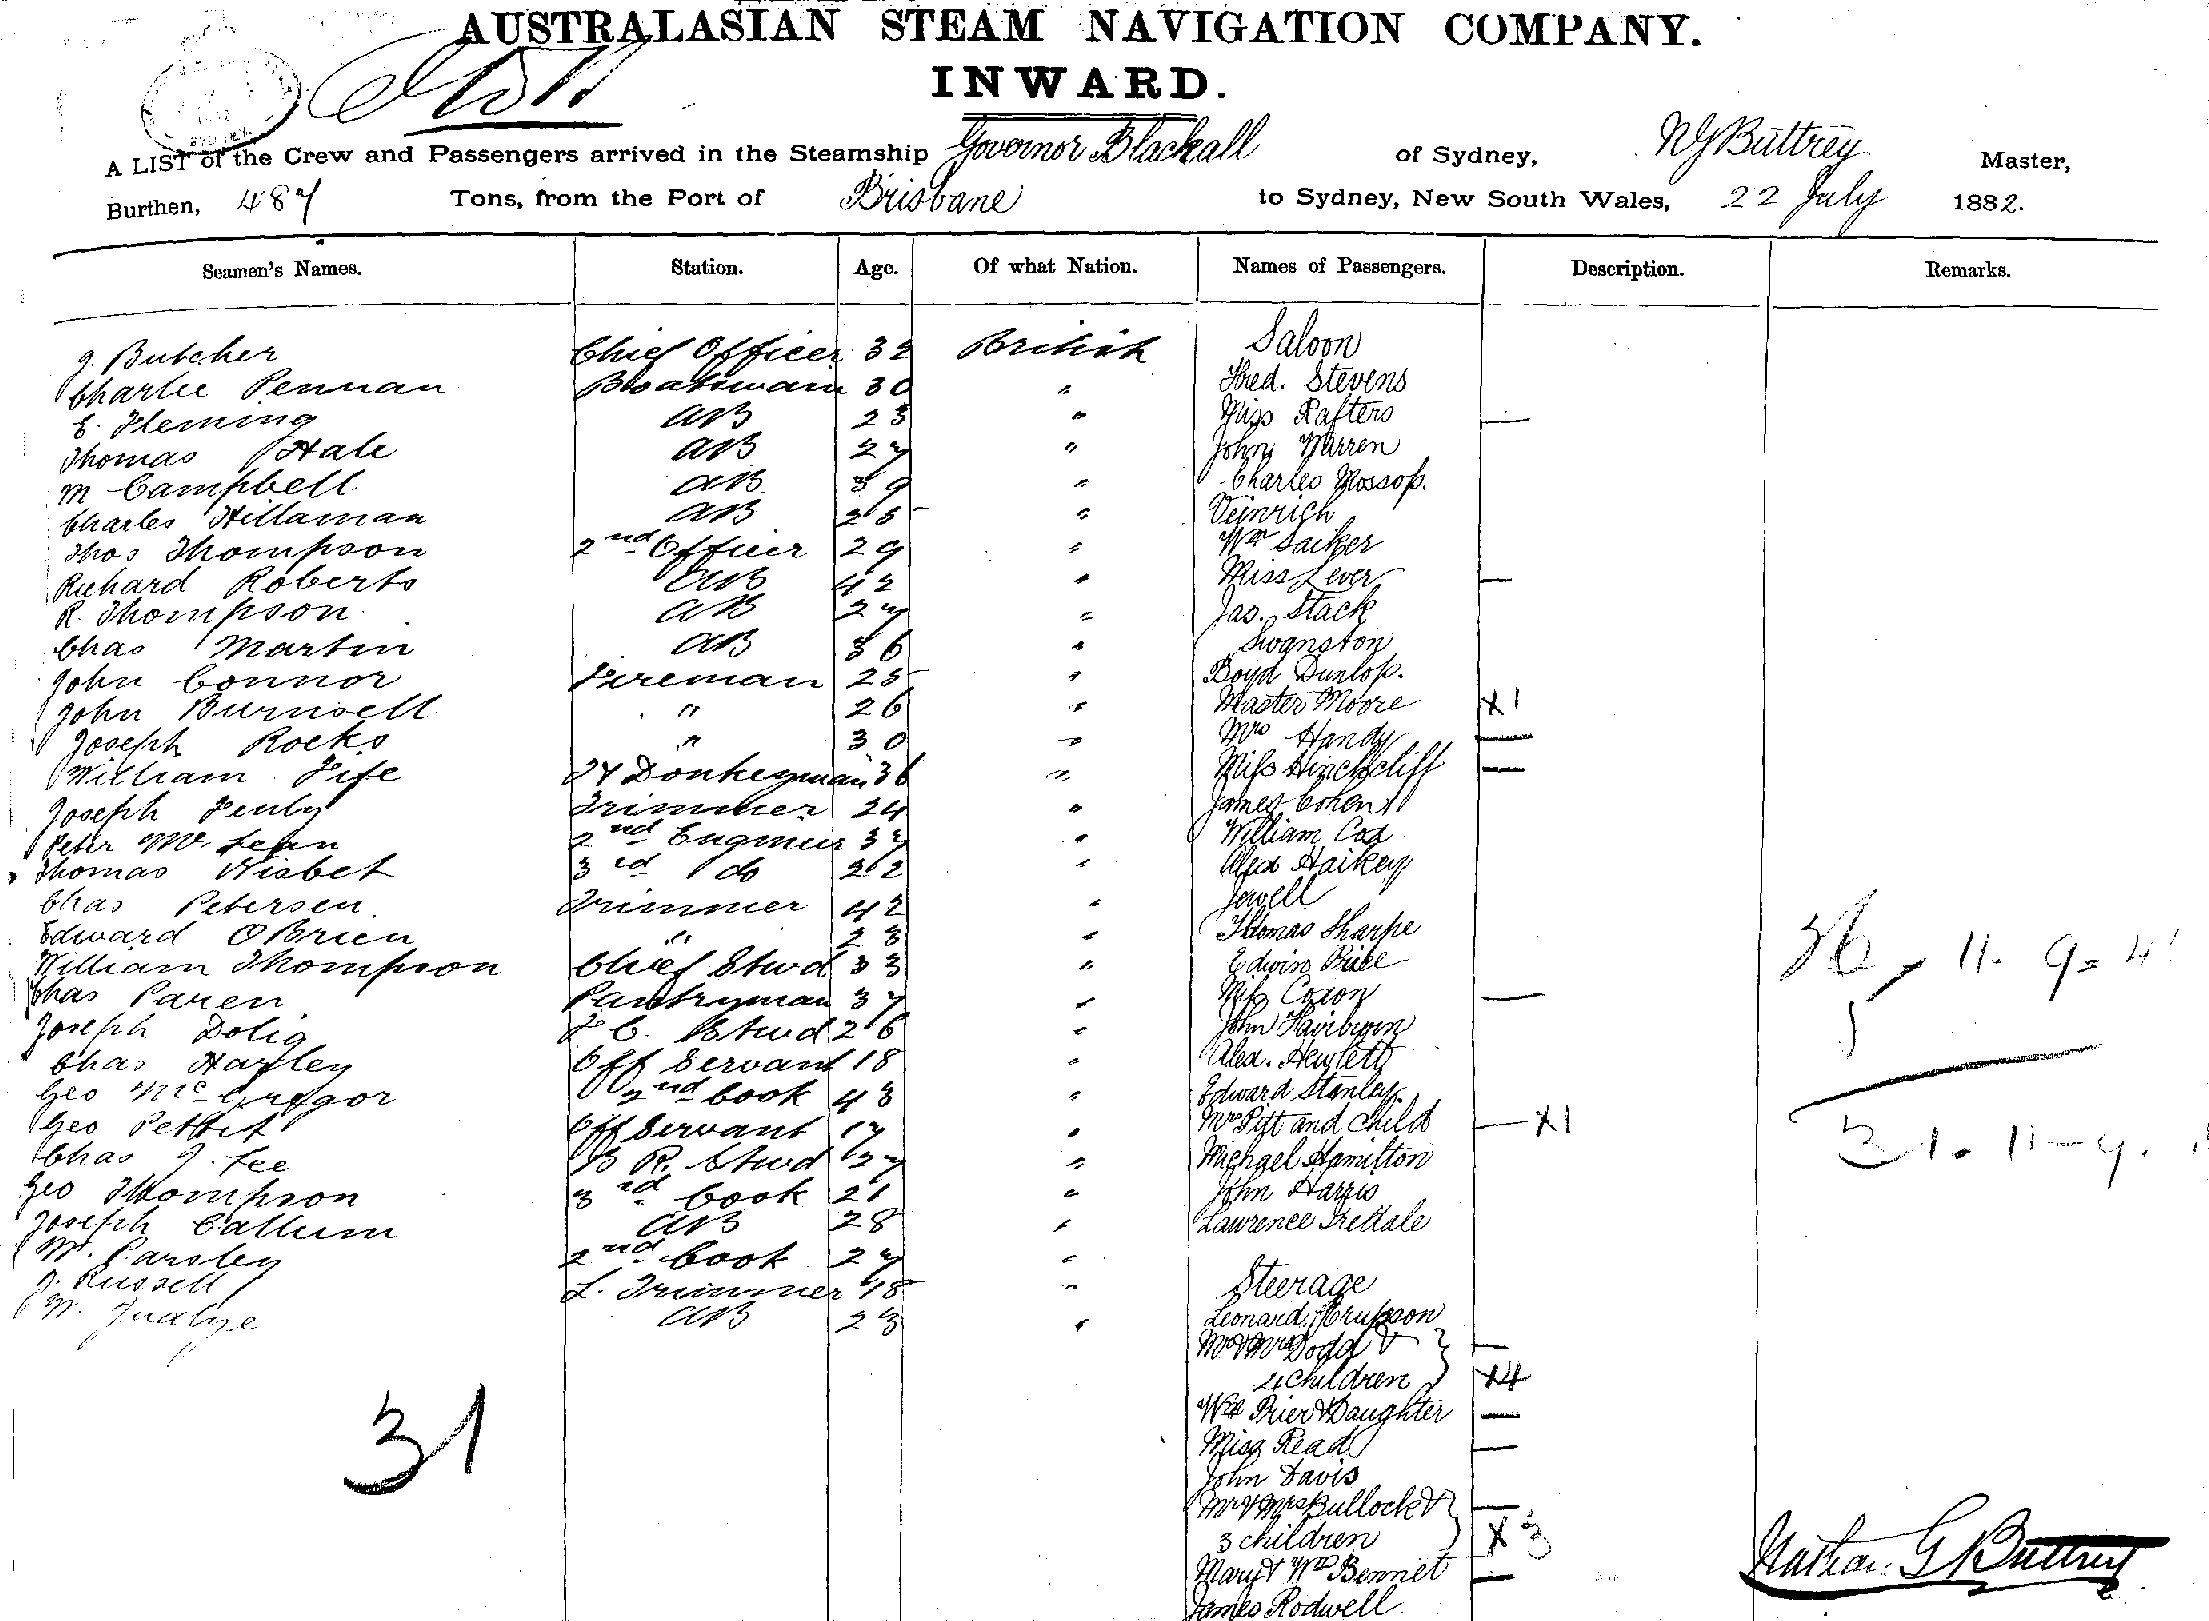 AUSTRALASIAN STEAM NAVIGATION COMPANY.
INWARD.
A LIST of the Crew and Passengers arrived in the Steamship Governor Blackall of Sydney, NG Buttrey Master,
Burthen, 487 Tons, from the Port of Brisbane to Sydney, New South Wales, 22 July 1882.
Seamen's Names. Station. Age. Of what Nation. Names of Passengers. Description. Remarks.
J. Butcher Chief Officer 32 British Saloon
Charlie Pennan Boatswain 30 " Fred. Stevens
E. Fleming AB 23 " Miss Rafters —
Thomas Hale AB 27 " John Warren
M Campbell AB 39 " Charles Mossop.
Charles Hillaman AB 25 " Veinrich
Thos Thompson 2nd Officer 29 " Wm Sacker
Richard Roberts AB 42 " Miss Lever —
R. Thompson AB 27 " Jas. Stack
Chas Martin AB 36 " Swanston
John Connor Fireman 25 " Boyd Dunlop.
John Burnsell " 26 " Master Moore X1
Joseph Rocks " 30 " Mrs Handy —
William Fife Donkeyman 36 " Miss Hinchcliff —
Joseph Fenby Trimmer 24 " James Cohen
Peter Mc Lean 2nd Engineer 37 " William Cox
Thomas Nisbet 3rd do 22 " Alex Haikey
Chas Petersen Trimmer 42 " Jewell
Edward OBrien " 23 " Thomas Sharpe
William Thompson Chief Stwd 33 " Edwin Rule
Chas Paren Pantryman 37 " Miss Coxon —
Joseph Dolig F C. Stwd 26 " John Fairburn
Chas Harley Off Servant 18 " Alex. Hewlett
Geo McGregor 2nd Cook 43 " Edward Stanley
Geo Pettit Off Servant 17 " Mrs Pitt and Child — X1
Chas J. Lee B R. Stwd 27 " Michael Hamilton
Geo Thompson 3rd Cook 21 " John Harris
Joseph Callum AB 28 " Lawrence Iredale
W. Parsley 2nd Cook 27 "
J. Russell L. Trimmer 48 " Steerage
W. Judge AB 23 " Leonard
Mr & Mrs Dodd & —
4 children X4
Wm Prier & Daughter —
Miss Read —
John Davis
Mr & Mrs Bullock & —
3 children X3
Mary & Wm Bennet —
James Rodwell
31
36, 11. 9 = 4
5
31. 11 – 9.
Nathan G Buttrey